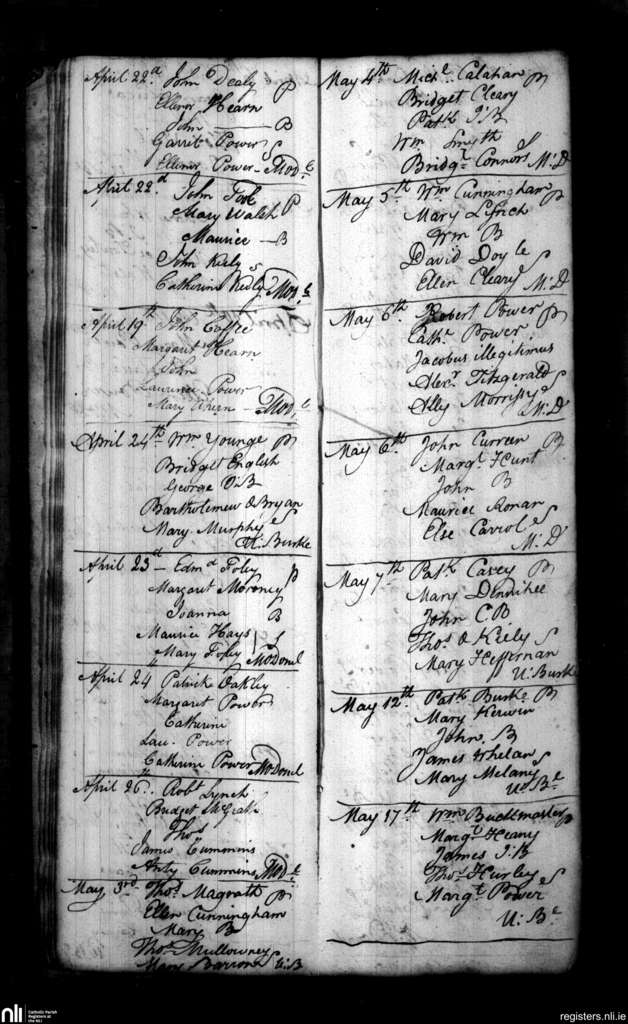 April 22d John Dealy P
Ellenor Hearn
John — B
Garrit Power S
Ellenor Power — McD.e
April 22d. John Foxe P
Mary Walsh
Maurice — B
John Kiely S
Catherine Kiely McD.e
April 19th John Coffee
Margaret Hearn
John
Lawrence Power
Mary — McD.e
April 24th Wm Younge P
Bridget English
George B
Bartholemew O Bryan
Mary Murphy S
U: Burke
April 23d — Edmd Foley P
Margaret Moroney
Joanna B
Maurice Hays S
Mary Foley McDonel
April 24 Patrick Oakley
Margaret Power
Catherine
Lau. Power
Catherine Power McDonel
April 26. Robt Lynch
Bridget McGrath
Thos
James Cummins
Anty Cummins McD.e
May 3rd Thos Magrath P
Ellen Cunningham
Mary B
Thos Mullowney
Mary Barron U:B
May 4th Michl Calahan P
Bridget Cleary
Patk I:B
Wm Smyth S
Bridgt Connors M:D
May 5th Wm Cunningham P
Mary Lynch
Wm B
David Doyle
Ellen Cleary S M:D
May 6th Robert Power P
Cathe Power
Jacobus illegitimus
Alexr Fitzgerald S
Ally Morrisy M:D
May 6th John Curreen P
Margt Hunt
John B
Maurice Ronan
Else Carrol S
M:D
May 7th Patk Casey P
Mary Dennihee
John C B
Thos O Kiely S
Mary Heffernan
U: Burke
May 12th Patk Burke P
Mary Kerwin
John B
James Whelan S
Mary Melany
U:Be
May 17th Wm Buckmaster P
Margt Heany
James I:B
Thos Hurley S
Margt Power
U: Be
nli Catholic Parish
Registers at
the NLI
registers.nli.ie